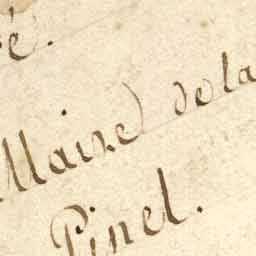 é.
Maire de la
Pinel.